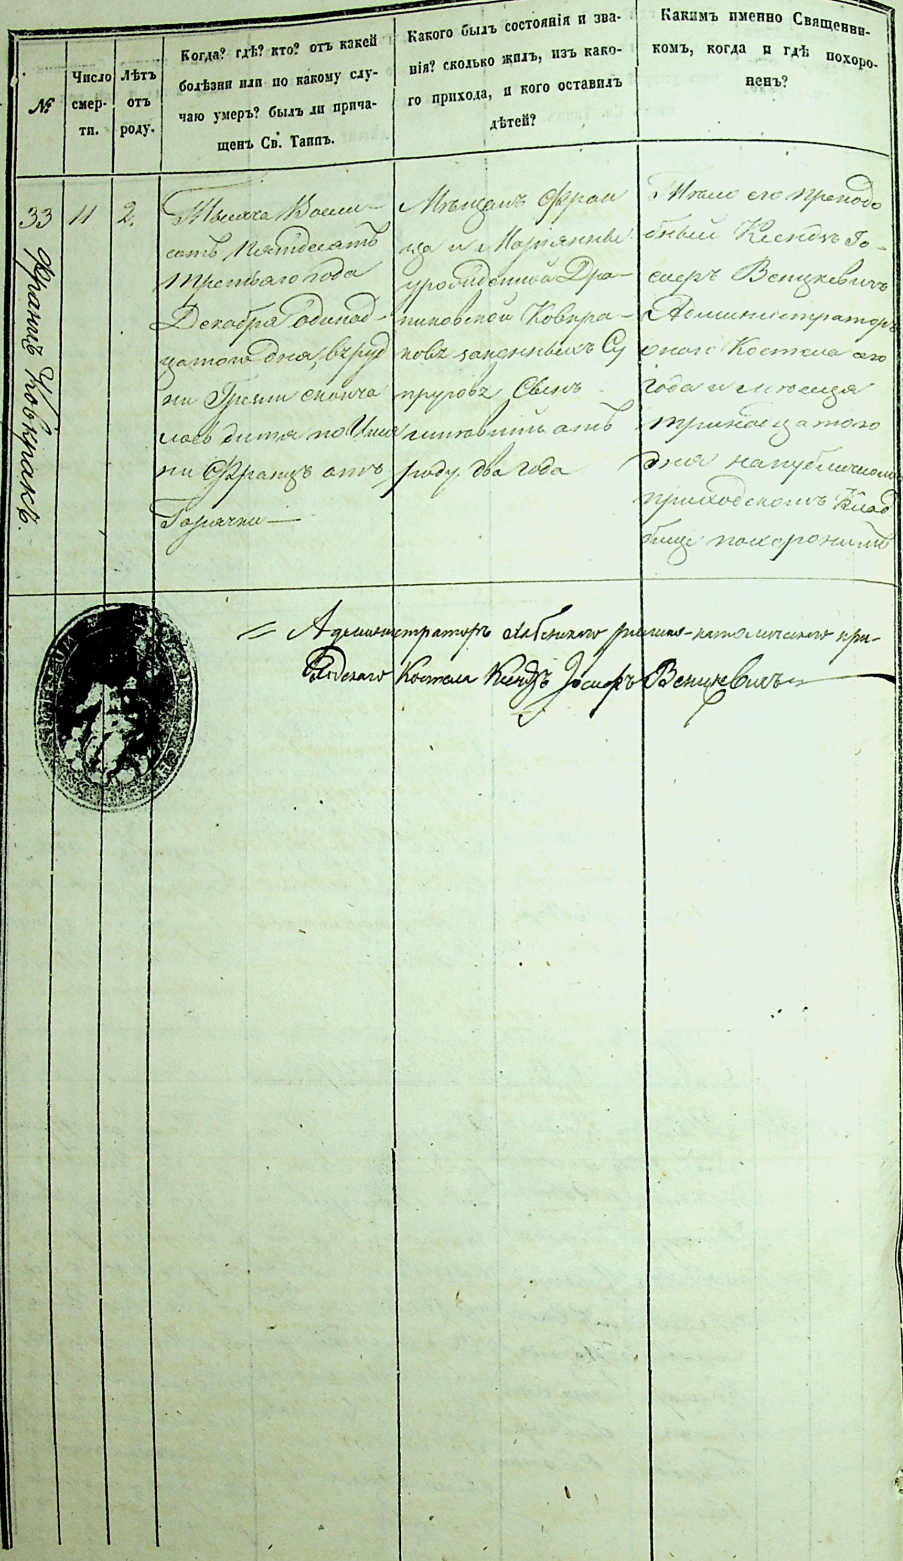 №
Число
смер-
ти.
Лѣтъ
отъ
роду.
Когда? гдѣ? кто? отъ какей
болѣзни или по какому слу-
чаю умеръ? былъ ли прича-
щенъ Св. Таинъ.
Какого былъ состоянія и зва-
нія? сколько жилъ, изъ како-
го прихода, и кого оставилъ
дѣтей?
Какимъ именно Священни-
комъ, когда и гдѣ похоро-
ненъ?
33
Францъ Ковкракъ.
11
2.
Тысяча Восем-
сотъ Пятдесятъ
третьяго года
Декабря одинад-
цатого дня, въ
скончa
лось дитя по Име
ни Францъ отъ
Горячки
Мѣщанъ Фран
ца и Маріянны
урожденной Дра-
пиковской Ковкра-
ковъ законныхъ Су
пруговъ Сынъ
отъ
роду два года
Тѣло его Препoдо
бный Ксендзъ Іо-
сифъ Веницкевичъ
Администраторъ
Костела
года и месяца
тринадцатого
дня на публичномъ
приходскомъ Клад
бище похоронилъ
Администраторъ римско-католического при-
ходскаго Костела Ксендзъ Іосифъ Веницкевичъ